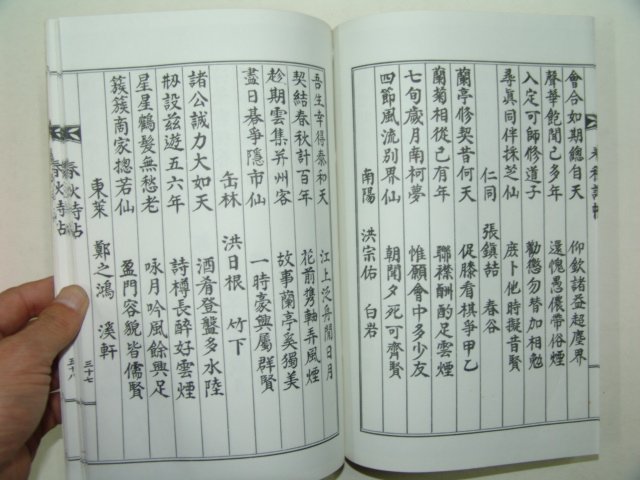 會合如期總自天　仰欽諸益超塵界
聲華飽聞已多年　還愧愚儂帶俗煙
入定可師修道子　勸懲勿替加相勉
尋眞同伴採芝仙　庶卜他時擬昔賢
仁同　張鎭誥　春谷
蘭亭修契昔何天　促膝看棋爭甲乙
蘭菊相後已有年　聯襟酬酌足雲煙
七旬歲月南柯夢　惟願會中多少友
四節風流別界仙　朝聞夕死可齊賢
南陽　洪宗佑　白岩
吾生幸得泰和天　江上泛舟閒日月
契結春秋計百年　花前携軸弄風煙
趁期雲集幷州客　故事蘭亭奚獨美
盡日碁爭隱市仙　一時豪興屬群賢
缶林　洪日根　竹下
諸公誠力大如天　酒肴登盤多水陸
刱設玆遊五六年　詩樽長醉好雲煙
星星鶴髮無愁老　咏月吟風餘興足
簇簇商家摠若仙　盈門容貌皆儒賢
東萊　鄭之鴻　溪軒
春秋詩帖
三十七
春秋詩帖